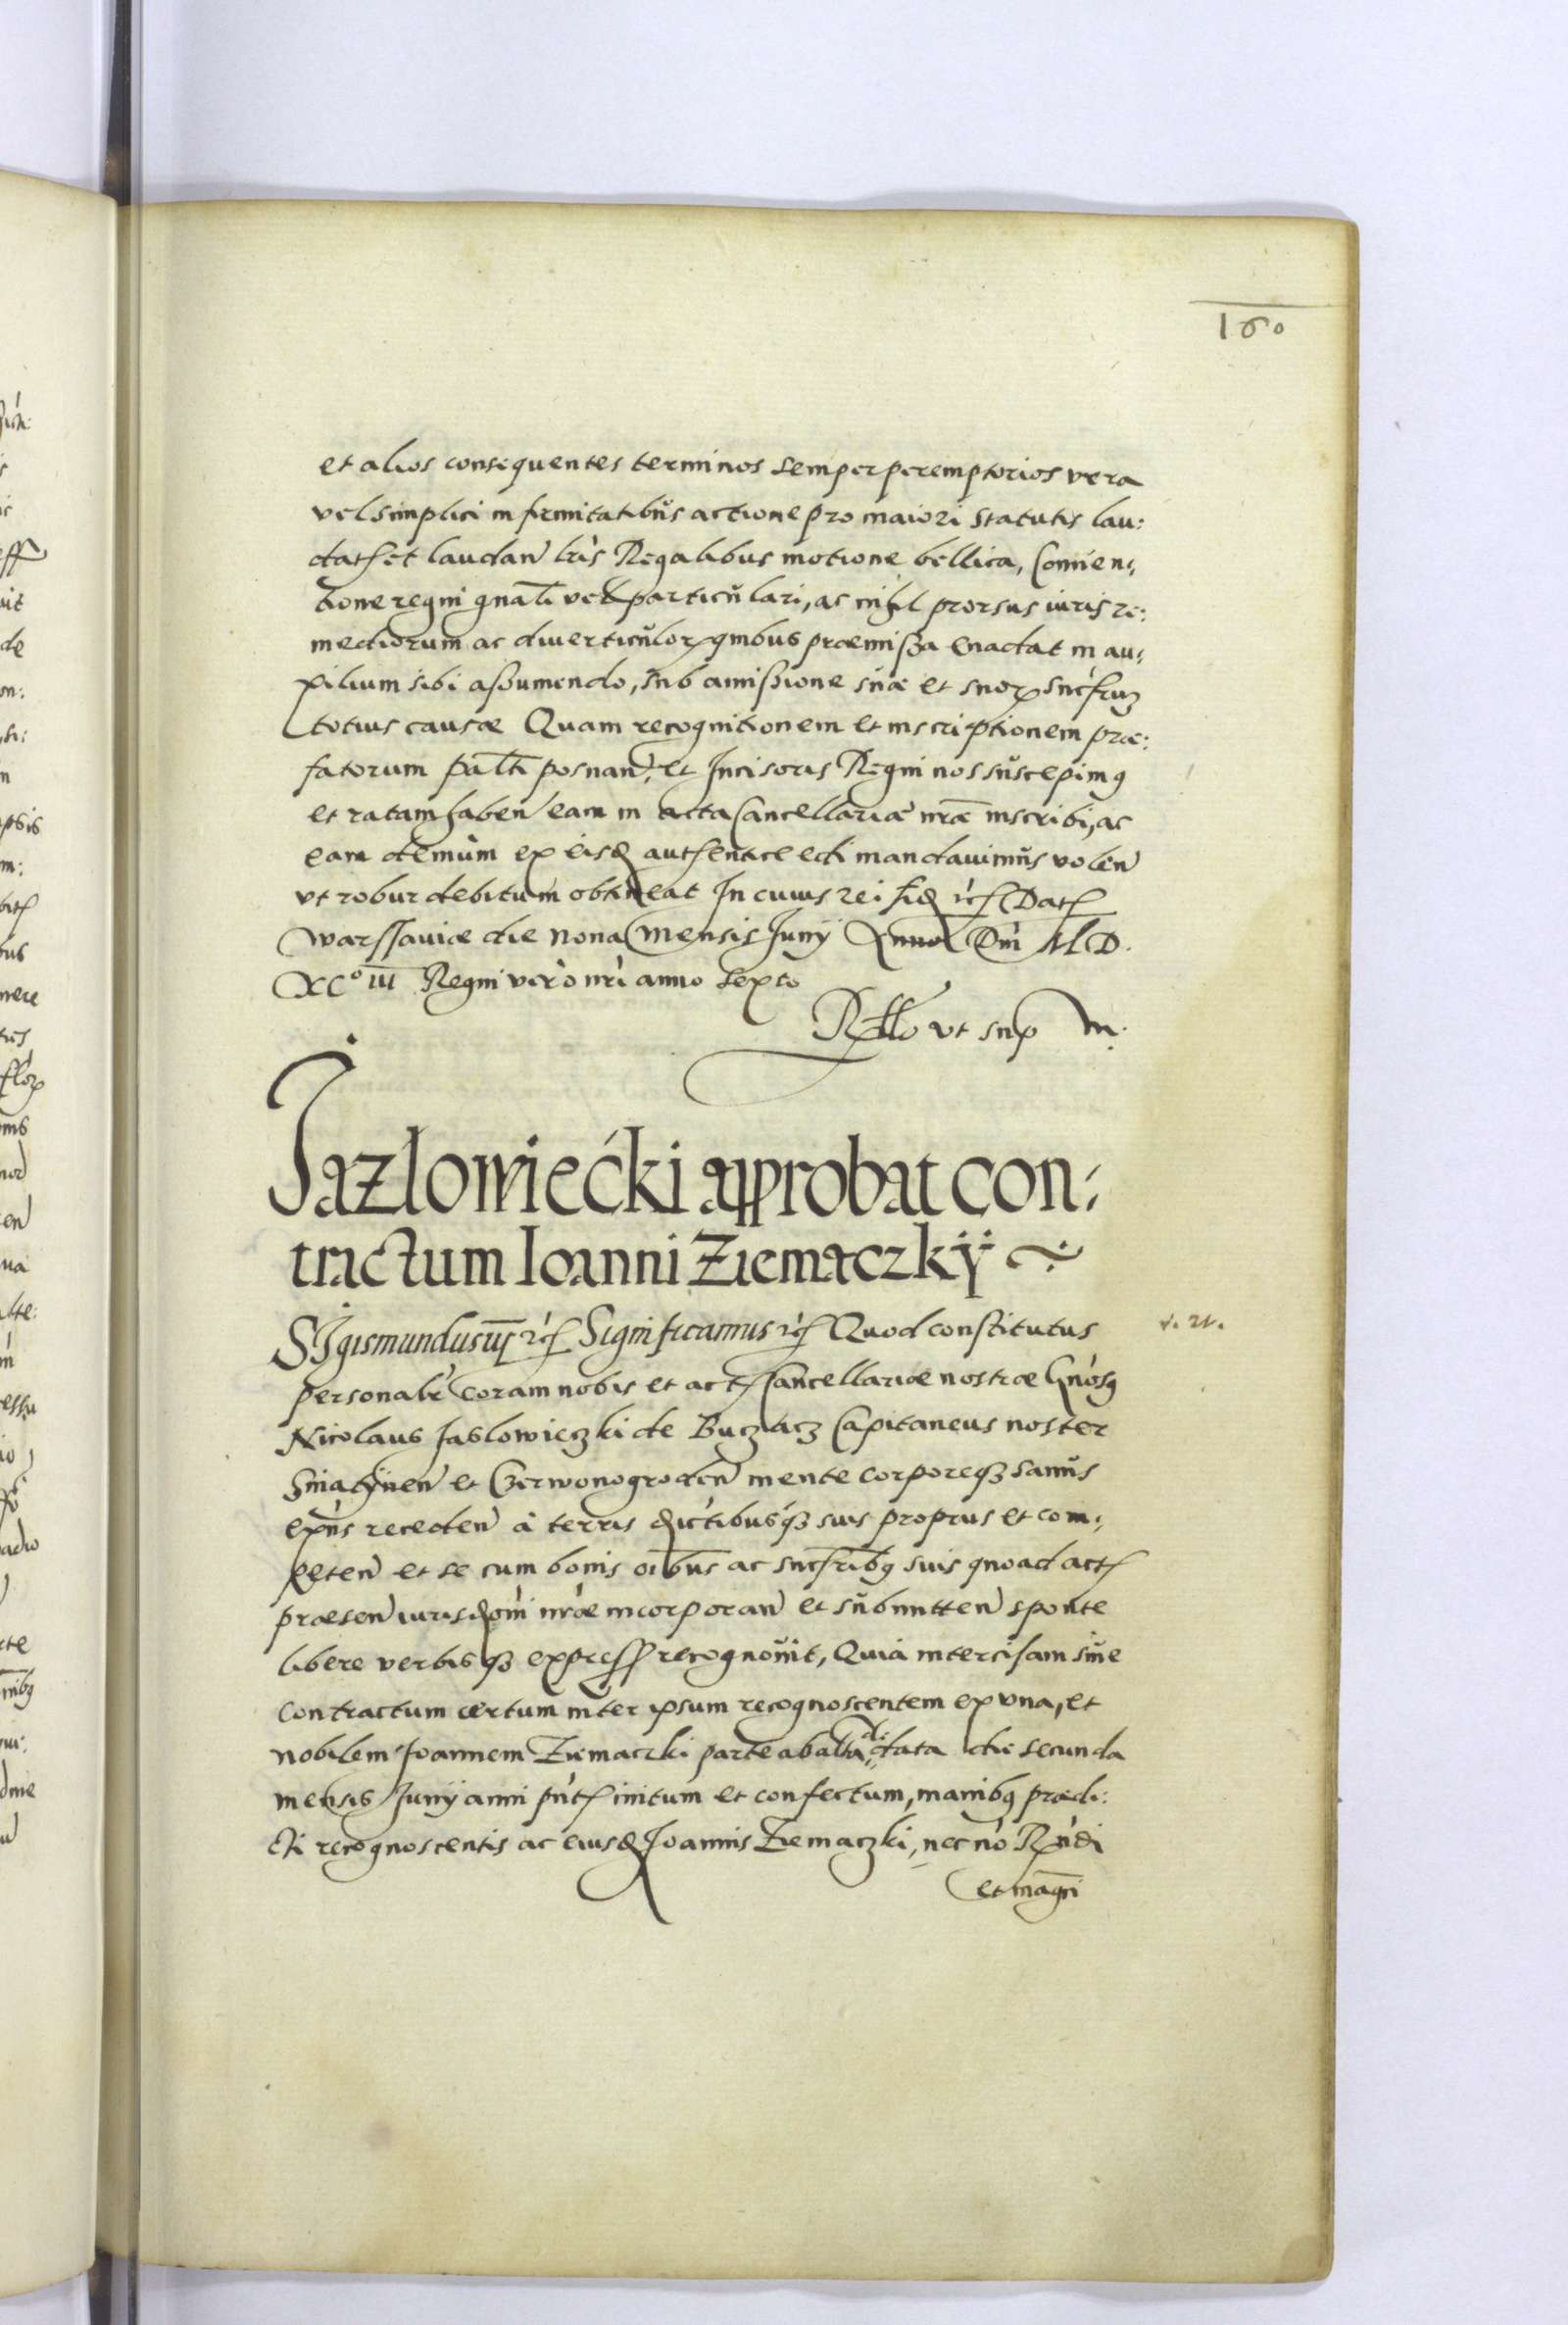 160
et alios consequentes terminos semper peremptorios vera
vel simplici infirmitatibus actione pro maiori statutis lau:
dat et laudan lris Regalibus motione bellica, Conuen:
tione regni gnali vel particulari, ac nihil prorsus iuris re:
mediorum ac diuerticulor quibus praemissa euadat in au:
xilium sibi assumendo, sub amissione suae et suor
totius causae Quam recognitionem et inscriptionem prae:
fatorum palti posnan, et Incisoris Regni nos suscepimus
et ratam haben eam in acta Cancellariae nrae inscribi, ac
eam demum ex eisd authentice edi mandauimus volen
vt robur debitum obtineat In cuius rei fid etc Dat
Warssauiae die nona mensis Junij Anno Dni M D.
XC° III Regni vero nri anno sexto
Rllo vt sup m.
Jazlowiećki approbat con:
tractum Ioanni Ziemaczkÿ
SIgismundus III etc Significamus etc Quod constitutus
personalr coram nobis et act Cancellariae nostrae Gnosus
Nicolaus Jaslowieczki de Buczacz Capitaneus noster
Sniatÿnen et Czerwonogroden mente corporeq sanus
exns receden à terris dictibusq suis proprijs et com:
peten et se cum bonis oibus ac succribus suis quoad act
praesen iurisdoni nrae incorporan et submitten sponte
libere verbisq express recognouit, Quia intercisam siue
contractum certum inter ipsum recognoscentem ex vna, et
nobilem Joannem Ziemaczki parte ab altā di: data die secunda
mensis Junij anni pnt initum et confectum, manibus praedi:
cti recognoscentis ac eiusd Joannis Ziemaczki, nec nō Rndi
et magci